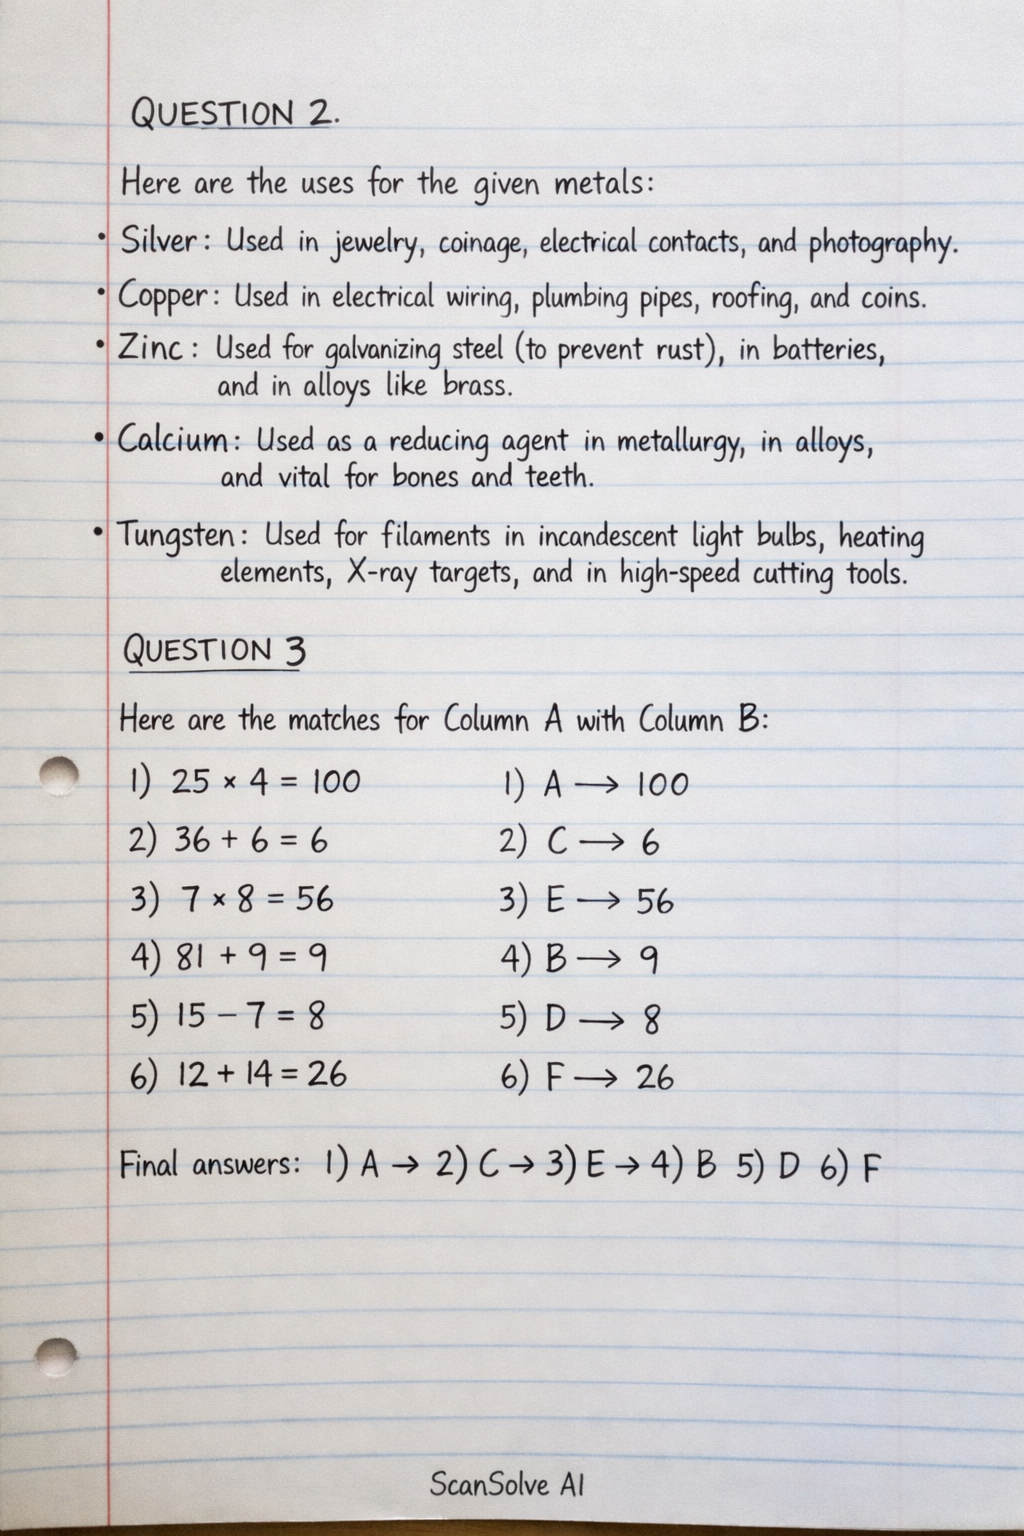 QUESTION 2.
Here are the uses for the given metals:
• Silver: Used in jewelry, coinage, electrical contacts, and photography.
• Copper: Used in electrical wiring, plumbing pipes, roofing, and coins.
• Zinc: Used for galvanizing steel (to prevent rust), in batteries,
and in alloys like brass.
• Calcium: Used as a reducing agent in metallurgy, in alloys,
and vital for bones and teeth.
• Tungsten: Used for filaments in incandescent light bulbs, heating
elements, X-ray targets, and in high-speed cutting tools.
QUESTION 3
Here are the matches for Column A with Column B:
1) 25 × 4 = 100 1) A → 100
2) 36 + 6 = 6 2) C → 6
3) 7 × 8 = 56 3) E → 56
4) 81 + 9 = 9 4) B → 9
5) 15 − 7 = 8 5) D → 8
6) 12 + 14 = 26 6) F → 26
Final answers: 1) A → 2) C → 3) E → 4) B 5) D 6) F
ScanSolve AI